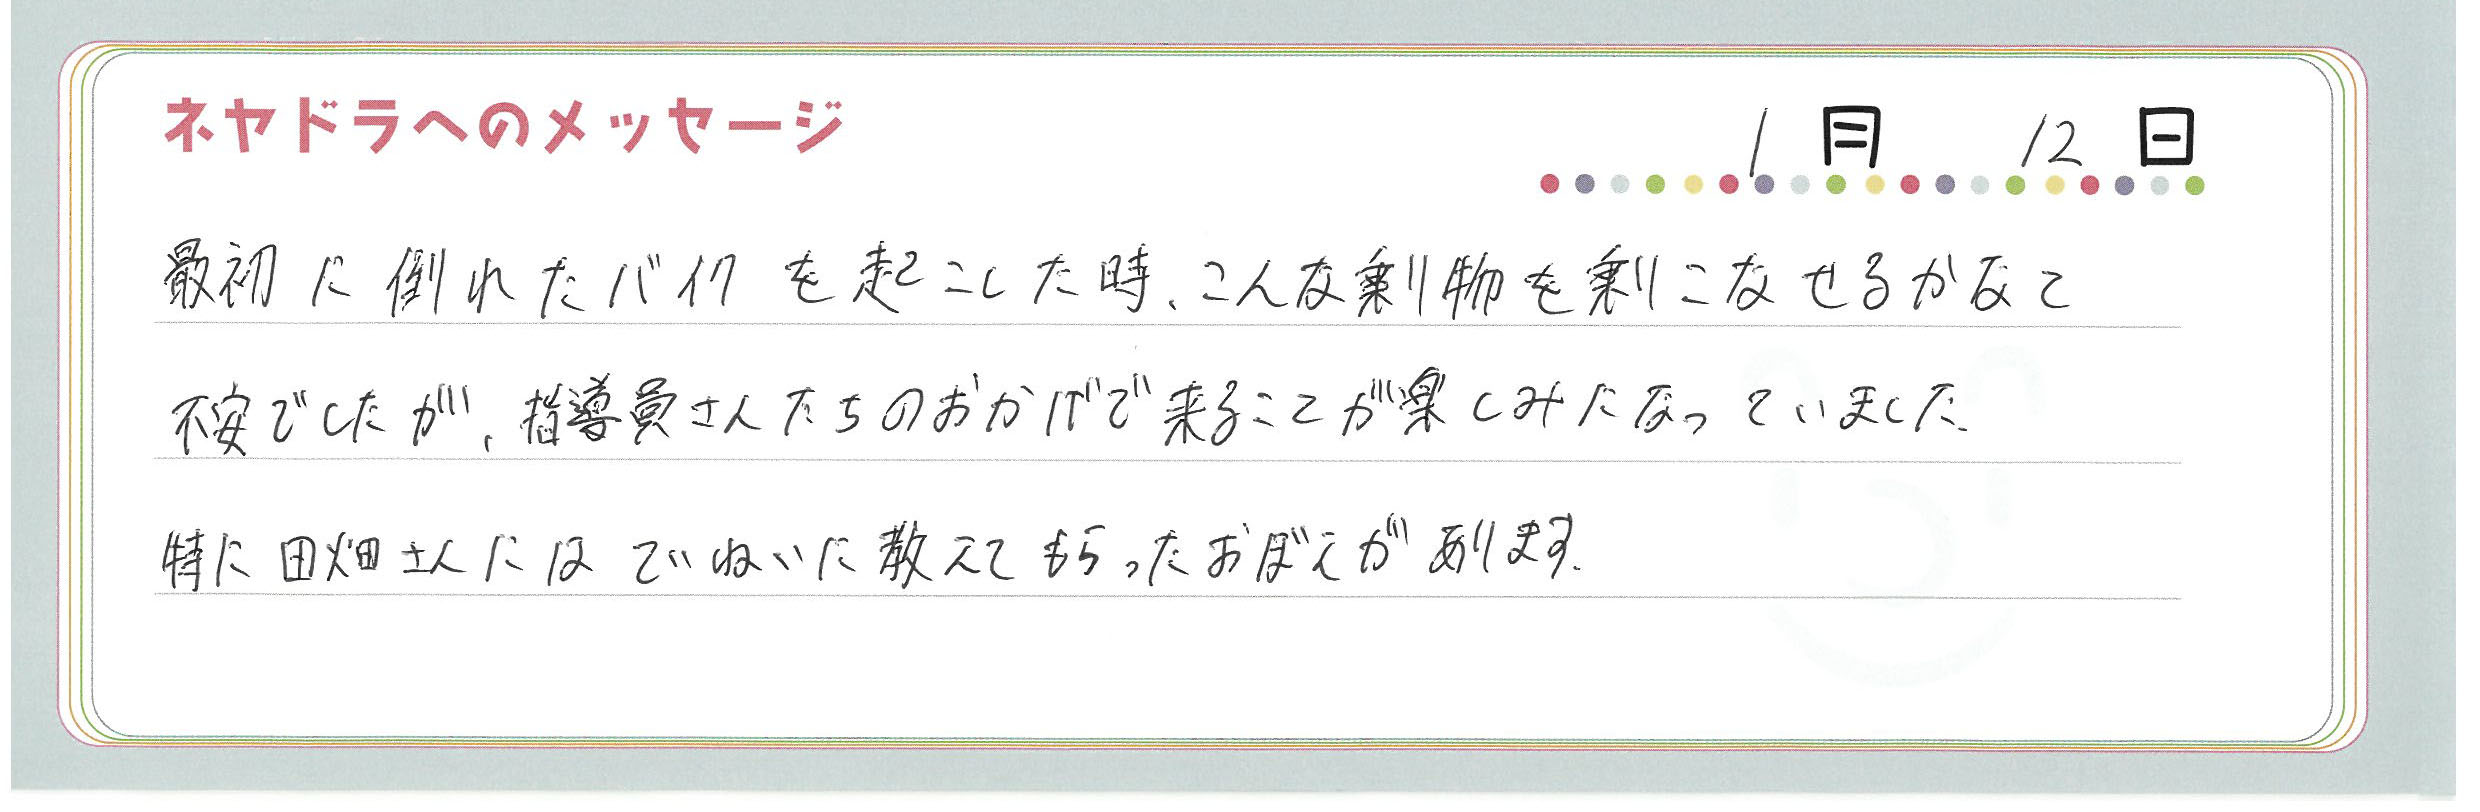 ネヤドラへのメッセージ
1月 12日
最初に倒れたバイクを起こした時、こんな乗り物を乗りこなせるかなと
不安でしたが、指導員さんたちのおかげで来ることが楽しみになっていました。
特に田畑さんにはていねいに教えてもらったおぼえがあります。